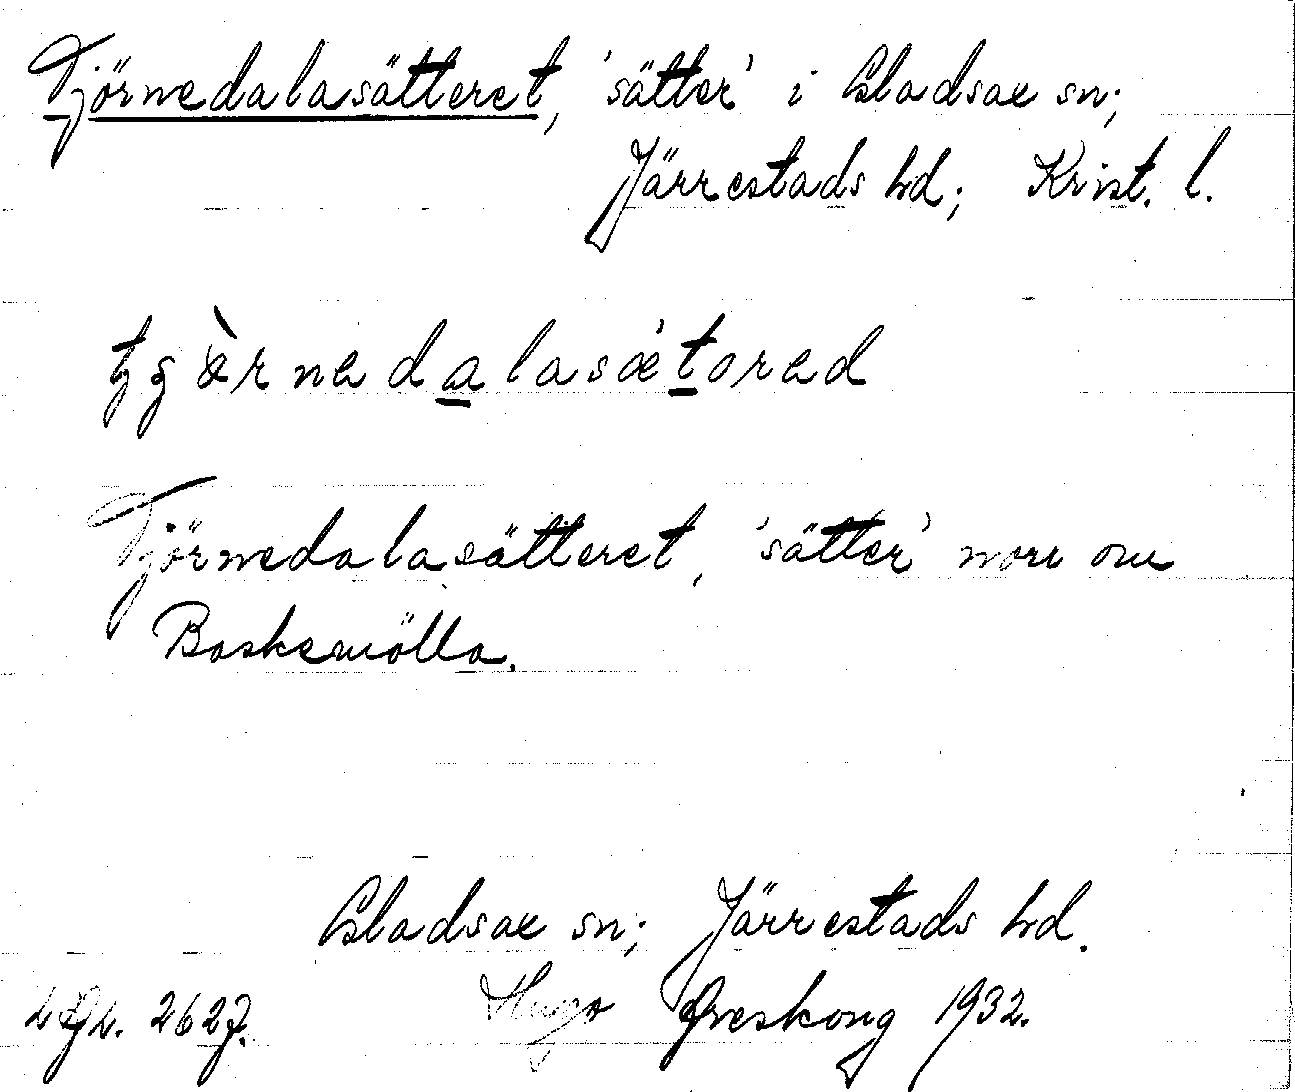 Tjörnedalasätteret, 'sätter' i Gladsax sn;
Järrestads hd; Krist. l.
Tjörnedalasätteret, 'sätter' norr om
Baskemölla.
Gladsax sn; Järrestads hd.
Hugo Areskoug 1932.